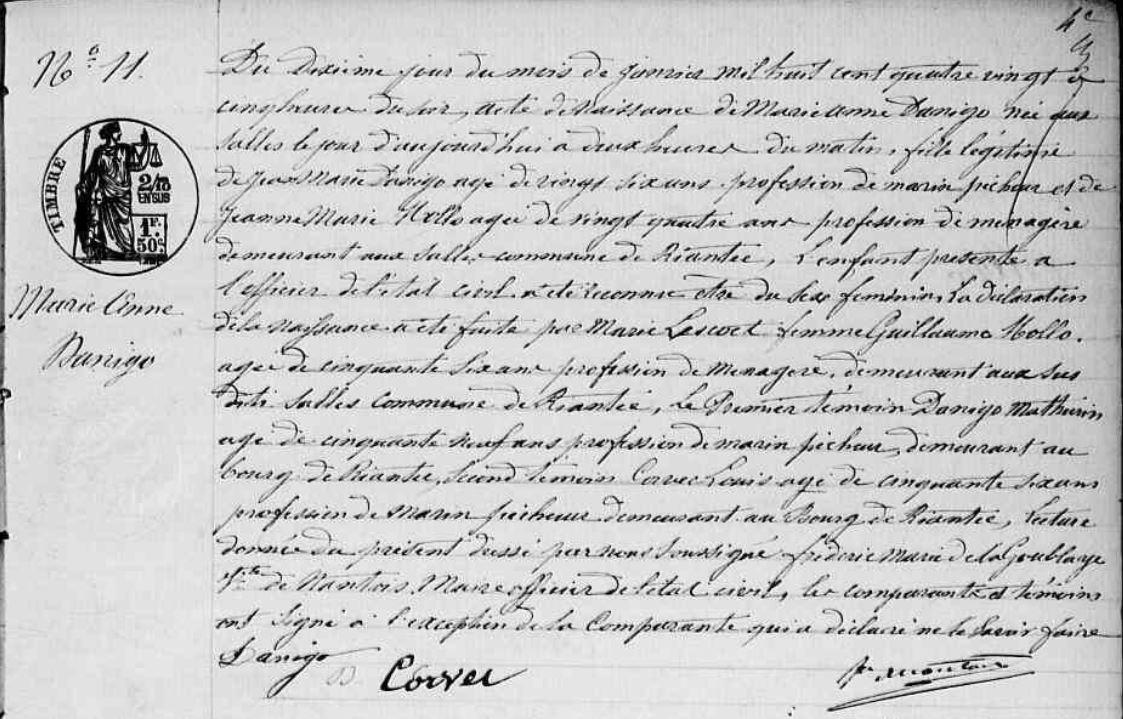 N° 11.
TIMBRE
2/10
EN SUS
1F.
50c
Marie Anne
Danigo
Du Dixième jour du mois de Janvier mil huit cent quatre vingt à
cinq heures du soir, acte de Naissance de Marie Anne Danigo née aux
Salles le jour d'aujourd'hui à deux heures du matin, fille légitime
de Jean Marie Danigo agé de vingt six ans profession de marin pêcheur et de
Jeanne Marie Hollo agée de vingt quatre ans profession de menagère
demeurant aux Salles commune de Riantec, L'enfant présenté a
l'officier de l'état civil a été reconnu être du sexe feminin, La déclaration
de la naissance a été faite par Marie Lescoet femme Guillaume Hollo.
agée de cinquante six ans profession de Menagère, demeurant aux sus
dits Salles commune de Riantec, Le Premier témoin Danigo Mathurin
agé de cinquante neuf ans profession de marin pêcheur, demeurant au
bourg de Riantec, second témoin Corvec Louis agé de cinquante six ans
profession de Marin pêcheur demeurant au Bourg de Riantec, Lecture
donnée du présent dressé par nous soussigné frédéric Marie de la Goublaye
Vte de Nantois, Maire officier de l'état civil, les comparants et témoins
ont signé à l'exception de la Comparante qui a déclaré ne le savoir faire
Danigo
Corvec